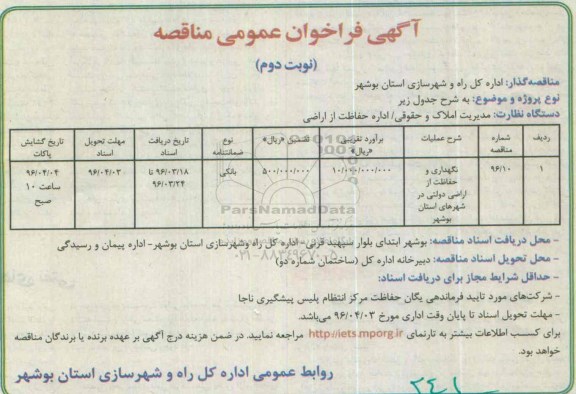 آگهی فراخوان عمومی مناقصه
(نوبت دوم)
مناقصه‌گذار: اداره کل راه و شهرسازی استان بوشهر
نوع پروژه و موضوع: به شرح جدول زیر
دستگاه نظارت: مدیریت املاک و حقوقی/ اداره حفاظت از اراضی
ردیف شماره مناقصه شرح عملیات برآورد تقریبی «ریال» تضمین «ریال» نوع ضمانتنامه تاریخ دریافت اسناد مهلت تحویل اسناد تاریخ گشایش پاکات
۱ ۹۶/۱۰ نگهداری و حفاظت از اراضی دولتی در شهرهای استان بوشهر ۱۰/۰۰۰/۰۰۰/۰۰۰ ۵۰۰/۰۰۰/۰۰۰ بانکی ۹۶/۰۳/۱۸ تا ۹۶/۰۳/۲۴ ۹۶/۰۴/۰۳ ۹۶/۰۴/۰۴ ساعت ۱۰ صبح
ParsNamadData
- محل دریافت اسناد مناقصه: بوشهر ابتدای بلوار سپهبد قرنی- اداره کل راه وشهرسازی استان بوشهر- اداره پیمان و رسیدگی
- محل تحویل اسناد مناقصه: دبیرخانه اداره کل (ساختمان شماره دو)
۰۲۱-۸۸۳۴۹۶۷۰
- حداقل شرایط مجاز برای دریافت اسناد:
- شرکت‌های مورد تایید فرماندهی یگان حفاظت مرکز انتظام پلیس پیشگیری ناجا
- مهلت تحویل اسناد تا پایان وقت اداری مورخ ۹۶/۰۴/۰۳ می‌باشد.
برای کسب اطلاعات بیشتر به تارنمای http://iets.mporg.ir مراجعه نمایید. در ضمن هزینه درج آگهی بر عهده برنده یا برندگان مناقصه
خواهد بود.
روابط عمومی اداره کل راه و شهرسازی استان بوشهر